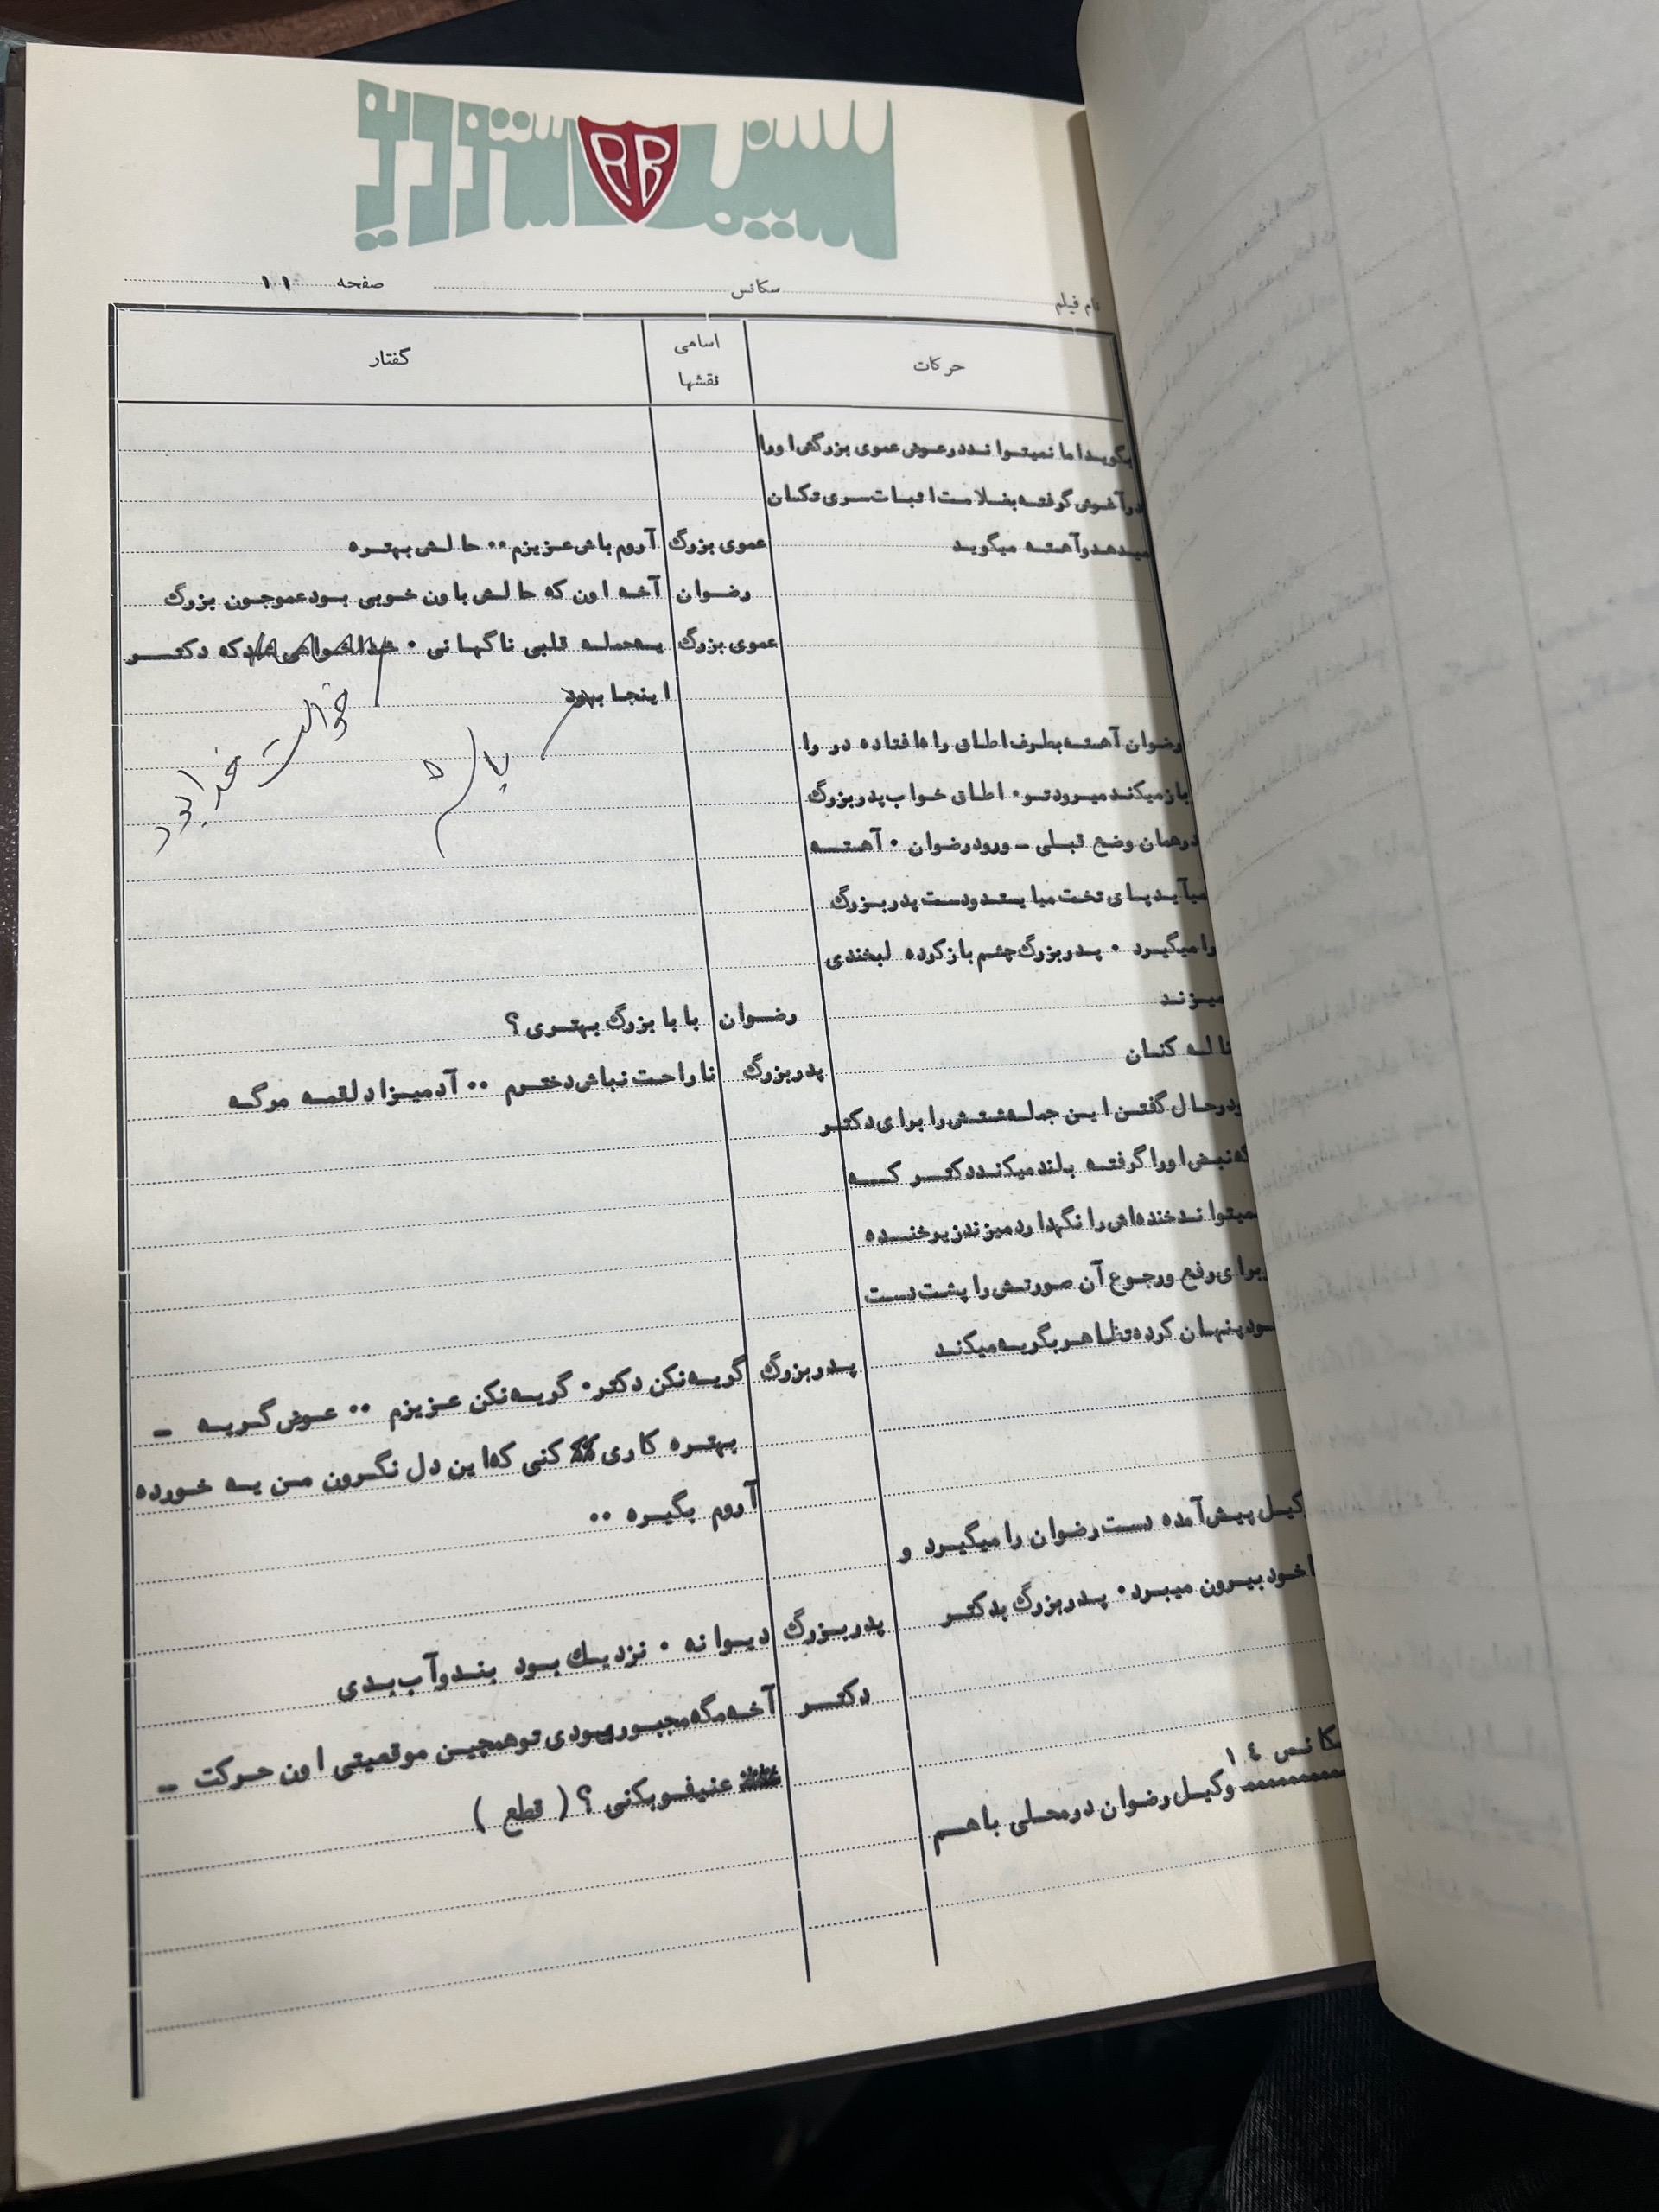 سینما استودیو
RR
نام فیلم سکانس صفحه ۱۱
حرکات
اسامی نقشها
گفتار
بگوید اما نمیتواند در عوض عموی بزرگش او را
در آغوش گرفته بعلامت اثبات سری تکان
میدهد و آهسته میگوید
عموی بزرگ آروم باش عزیزم ۰۰ حالش بهتره
رضوان آخه اون که حالش باون خوبی بود عموجون بزرگ
عموی بزرگ یه حمله قلبی ناگهانی ۰ که دکتر
اینجا
خواست خدا بود
باشه
رضوان آهسته بطرف اطاق راه افتاده در را
باز میکند میرود تو ۰ اطاق خواب پدربزرگ
در همان وضع قبلی - ورود رضوان ۰ آهسته
میآید پای تخت میایستد و دست پدربزرگ
را میگیرد ۰ پدربزرگ چشم باز کرده لبخندی
میزند
رضوان بابا بزرگ بهتری ؟
ناله کنان
پدربزرگ ناراحت نباش دخترم ۰۰ آدمیزاد لقمه مرگه
ودر حال گفتن این جمله شتش را برای دکتر
که نبض او را گرفته بلند میکند دکتر که
نمیتواند خنده اش را نگهدارد میزند زیر خنده
برای رفع و رجوع آن صورتش را پشت دست
خود پنهان کرده تظاهر بگریه میکند
پدربزرگ گریه نکن دکتر ۰ گریه نکن عزیزم ۰۰ عوض گریه -
بهتره کاری کنی که این دل نگرون من یه خورده
آروم بگیره ۰۰
وکیل پیش آمده دست رضوان را میگیرد و
با خود بیرون میبرد ۰ پدربزرگ بدکتر
پدربزرگ دیوانه ۰ نزدیک بود بند و آب بدی
دکتر آخه مگه مجبور بودی تو همچین موقعیتی اون حرکت -
عنیفو بکنی ؟ ( قطع )
سکانس ۱۴
وکیل رضوان در محلی با هم